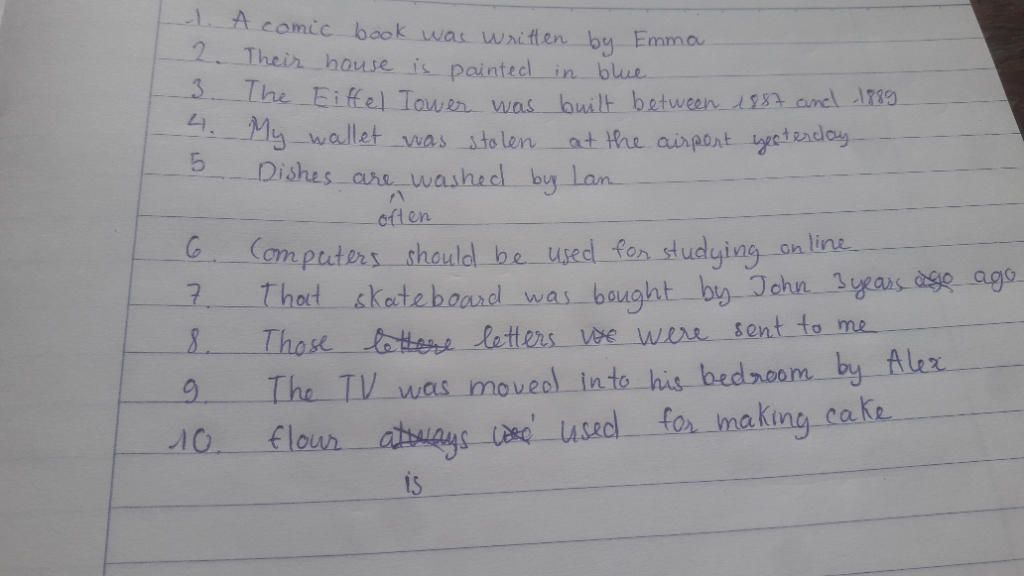 1. A comic book was written by Emma
2. Their house is painted in blue
3. The Eiffel Tower was built between 1887 and 1889
4. My wallet was stolen at the airport yesterday
5 Dishes are washed by Lan
^
often
6. Computers should be used for studying online
7. That skateboard was bought by John 3 years ago ago
8. Those lettere letters we were sent to me
9 The TV was moved into his bedroom by Alex
10. flour always used used for making cake
is